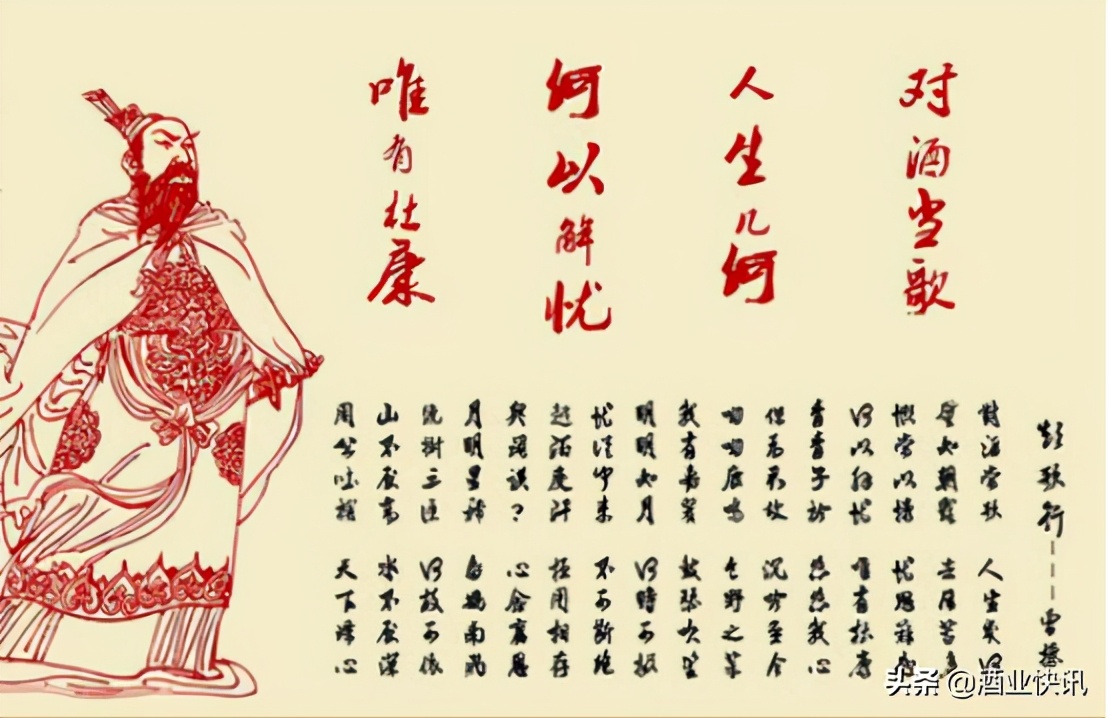 对酒当歌
人生几何
何以解忧
唯有杜康
短歌行———曹操
對酒當歌 人生幾何
譬如朝露 去日苦多
慨當以慷 忧思難忘
何以解忧 唯有杜康
青青子衿 悠悠我心
但为君故 沉吟至今
呦呦鹿鸣 食野之苹
我有嘉宾 鼓瑟吹笙
明明如月 何時可掇
忧從中来 不可断绝
越陌度阡 枉用相存
契阔谈? 心念舊恩
月明星稀 乌鹊南飛
绕树三匝 何枝可依
山不厌高 水不厌深
周公吐哺 天下归心
头条 @酒业快讯